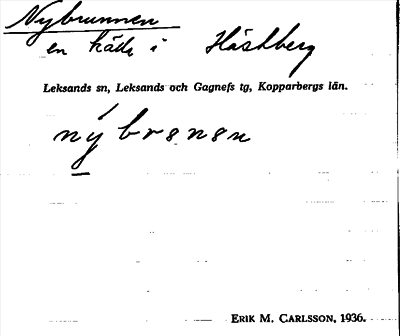 Nybrunnen
en källa i Häshberg
Leksands sn, Leksands och Gagnefs tg, Kopparbergs län.
nýbrɵnɵn
ERIK M. CARLSSON, 1936.